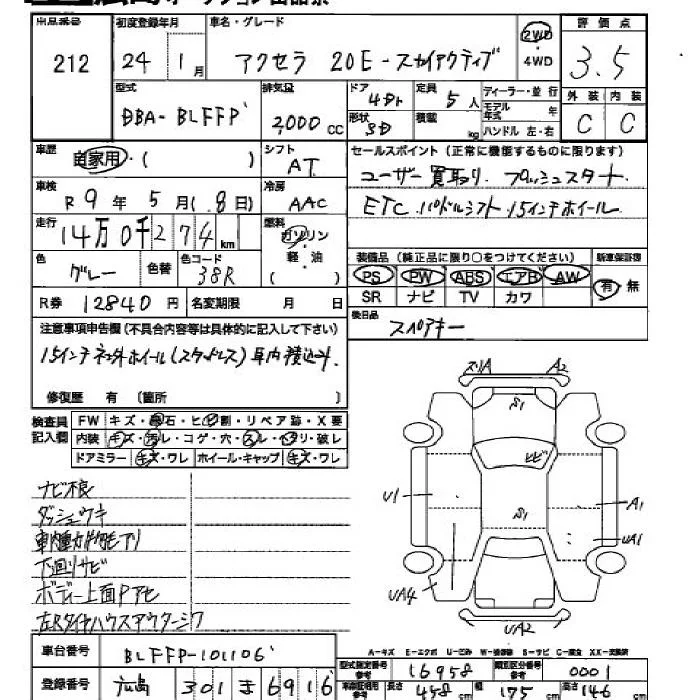 出品番号 初度登録年月 車名・グレード 2WD 4WD 評価点
212 24 1月 アクセラ 20E-スカイアクティブ 3.5
型式 DBA-BLFFP 排気量 2,000 CC ドア 4Dr 形状 5D 定員 5人 積載 kg ディーラー・並行 モデル年式 年 ハンドル 左・右 外装 C 内装 C
車歴 自家用・( ) シフト AT セールスポイント(正常に機能するものに限ります)
車検 R9年5月(8日) 冷房 AAC ユーザー買取り プッシュスタート
走行 14万0千274km 燃料 ガソリン 軽・油 ( ) ETC パドルシフト 15インチホイール
色 グレー 色替 色コード 38R 装備品(純正品に限り○をつけてください) 新車保証書
PS PW ABS エアB AW 有・無
SR ナビ TV カワ
R券 12840円 名変期限 月 日 後日品
スペアキー
注意事項申告欄(不具合内容等は具体的に記入して下さい)
15インチ ホイール(スタッドレス)車内積込み
修復歴 有 〔箇所 〕
検査員記入欄 FW キズ・飛石・ヒビ割・リペア跡・X要
内装 キズ・汚レ・コゲ・穴・スレ・ヘリ・破レ
ドアミラー キズ・ワレ ホイール・キャップ キズ・ワレ
A2
S1
ヒビ
U1
A1
S1
UA1
UA4
UA2
ナビ不良
ダッシュウキ
下廻リサビ
ボディー上面
A-キズ E-エクボ U-凹み W-補修跡 S-サビ C-腐食 XX-交換済
車台番号 BLFFP-101106 型式指定番号 参考 16958 類別区分番号 参考 0001
登録番号 広島 301 ま 6916 長さ 458cm 幅 175cm 高さ 146cm